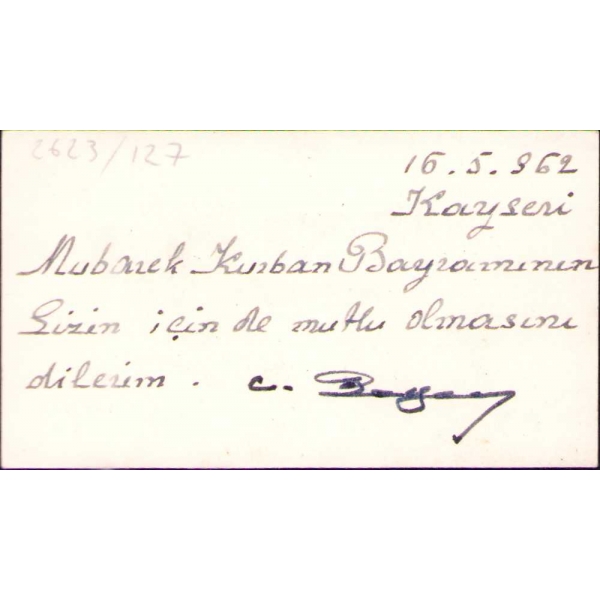 2623/127
16.5.962
Kayseri
Mubarek Kurban Bayramının
Sizin için de mutlu olmasını
dilerim. C. Bayar